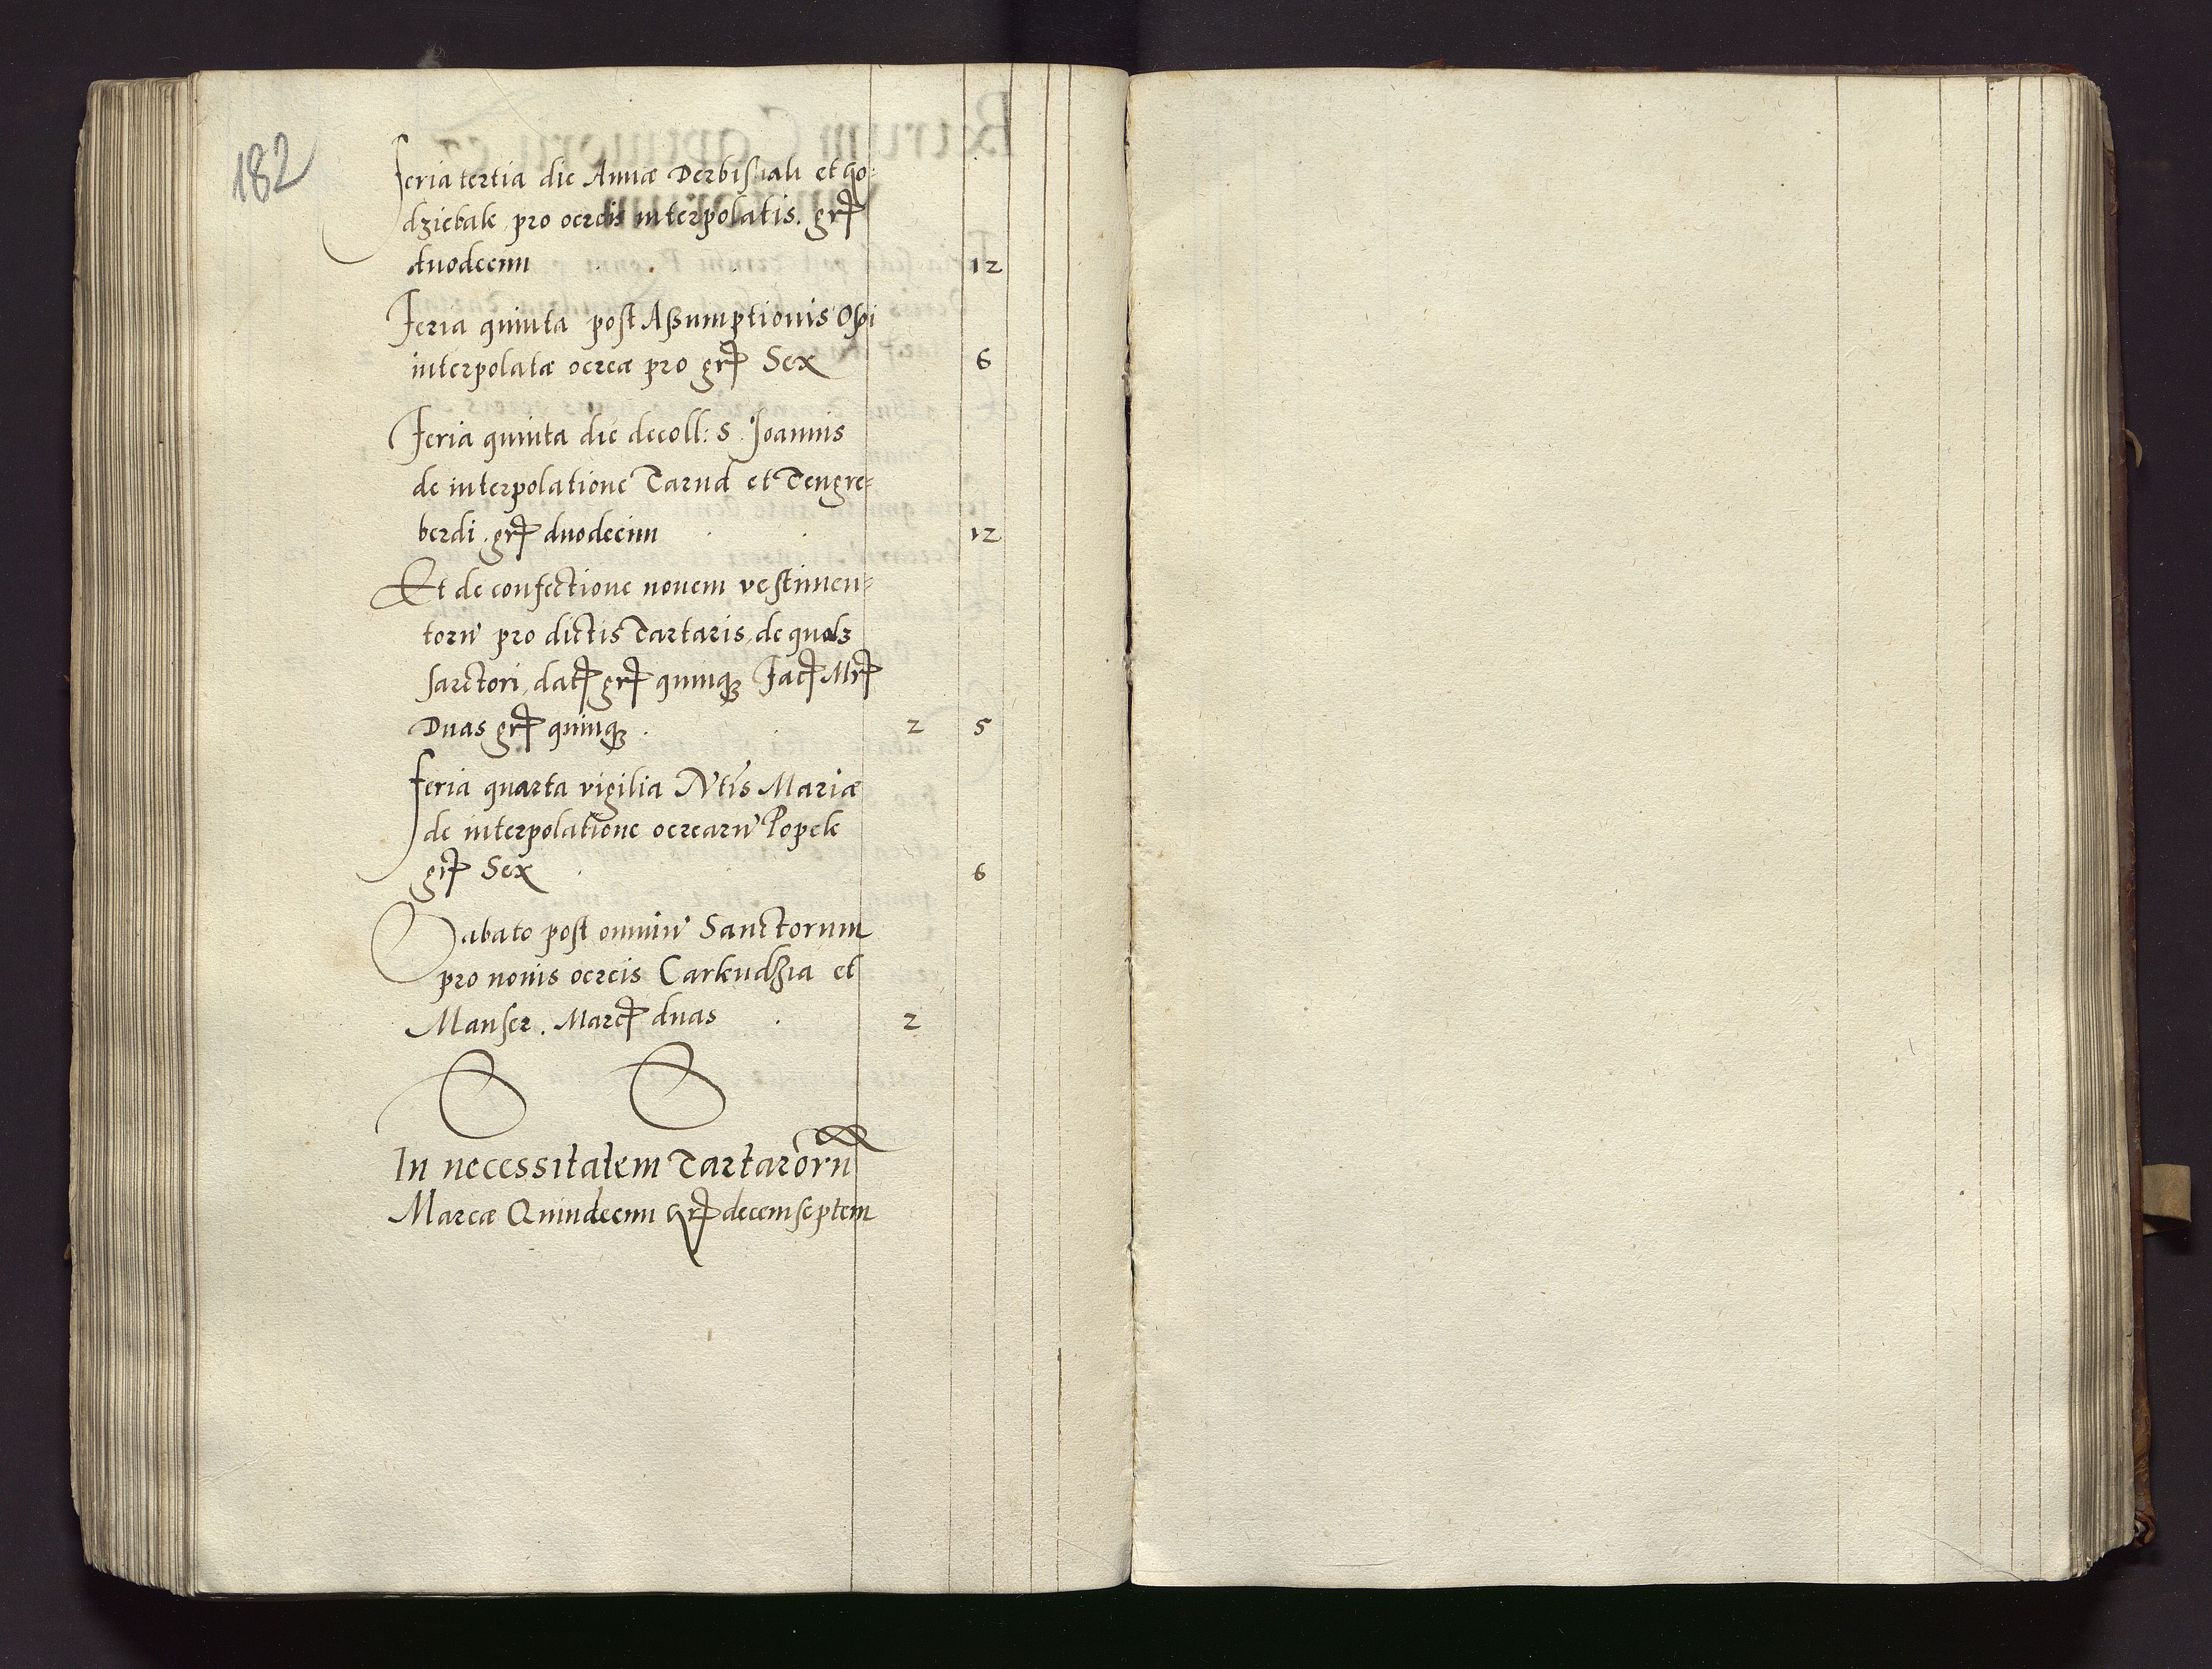 182
Feria tertia die Annæ Derbisɜali et Go:
dziebale pro ocreis interpolatis. grꝭ
duodecim 12
Feria quinta post Assumptionis Ospi
interpolatæ ocreæ pro grꝭ Sex 6
Feria quinta die decoll: S. Joannis
de interpolatione Tarnd et Tengre=
berdi. grꝭ duodecim 12
Et de confectione nouem vestimen=
torũ pro dictis Tartaris, de quolꝫ
sarctori, datꝭ grꝭ quinqꝫ facꝭ Mrꝭ
Duas grꝭ quinqꝫ. 2 5
Feria quarta vigilia Ntĩs Mariæ
de interpolatione ocrearũ Popek
grꝭ Sex 6
Sabato post omniũ Sanctorum
pro nouis ocreis Carkudzia et
Manser. Marcꝭ duas 2
In necessitatem Tartarorũ
Marcæ Quindecim Grꝭ decemseptem